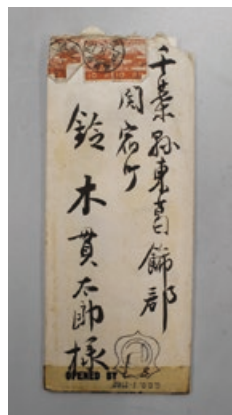 千葉縣東葛飾郡
関宿町
鈴木貫太郎様
OPENED BY